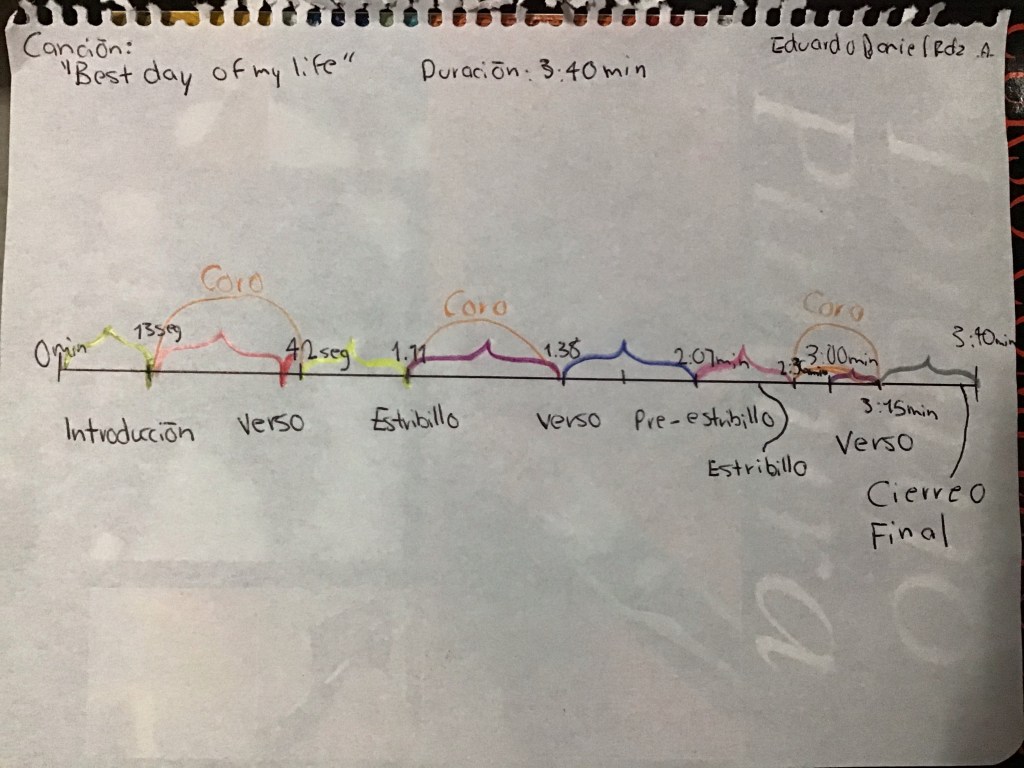 Canción:
"Best day of my life"
Duración: 3:40 min
Eduardo Daniel Rdz A.
Coro
Coro
Coro
0 min
13 seg
42 seg
1.11
1.38
2:07 min
3:00 min
3:40 min
3:15 min
Introducción
Verso
Estribillo
Verso
Pre-estribillo
Estribillo
Verso
Cierre o
Final